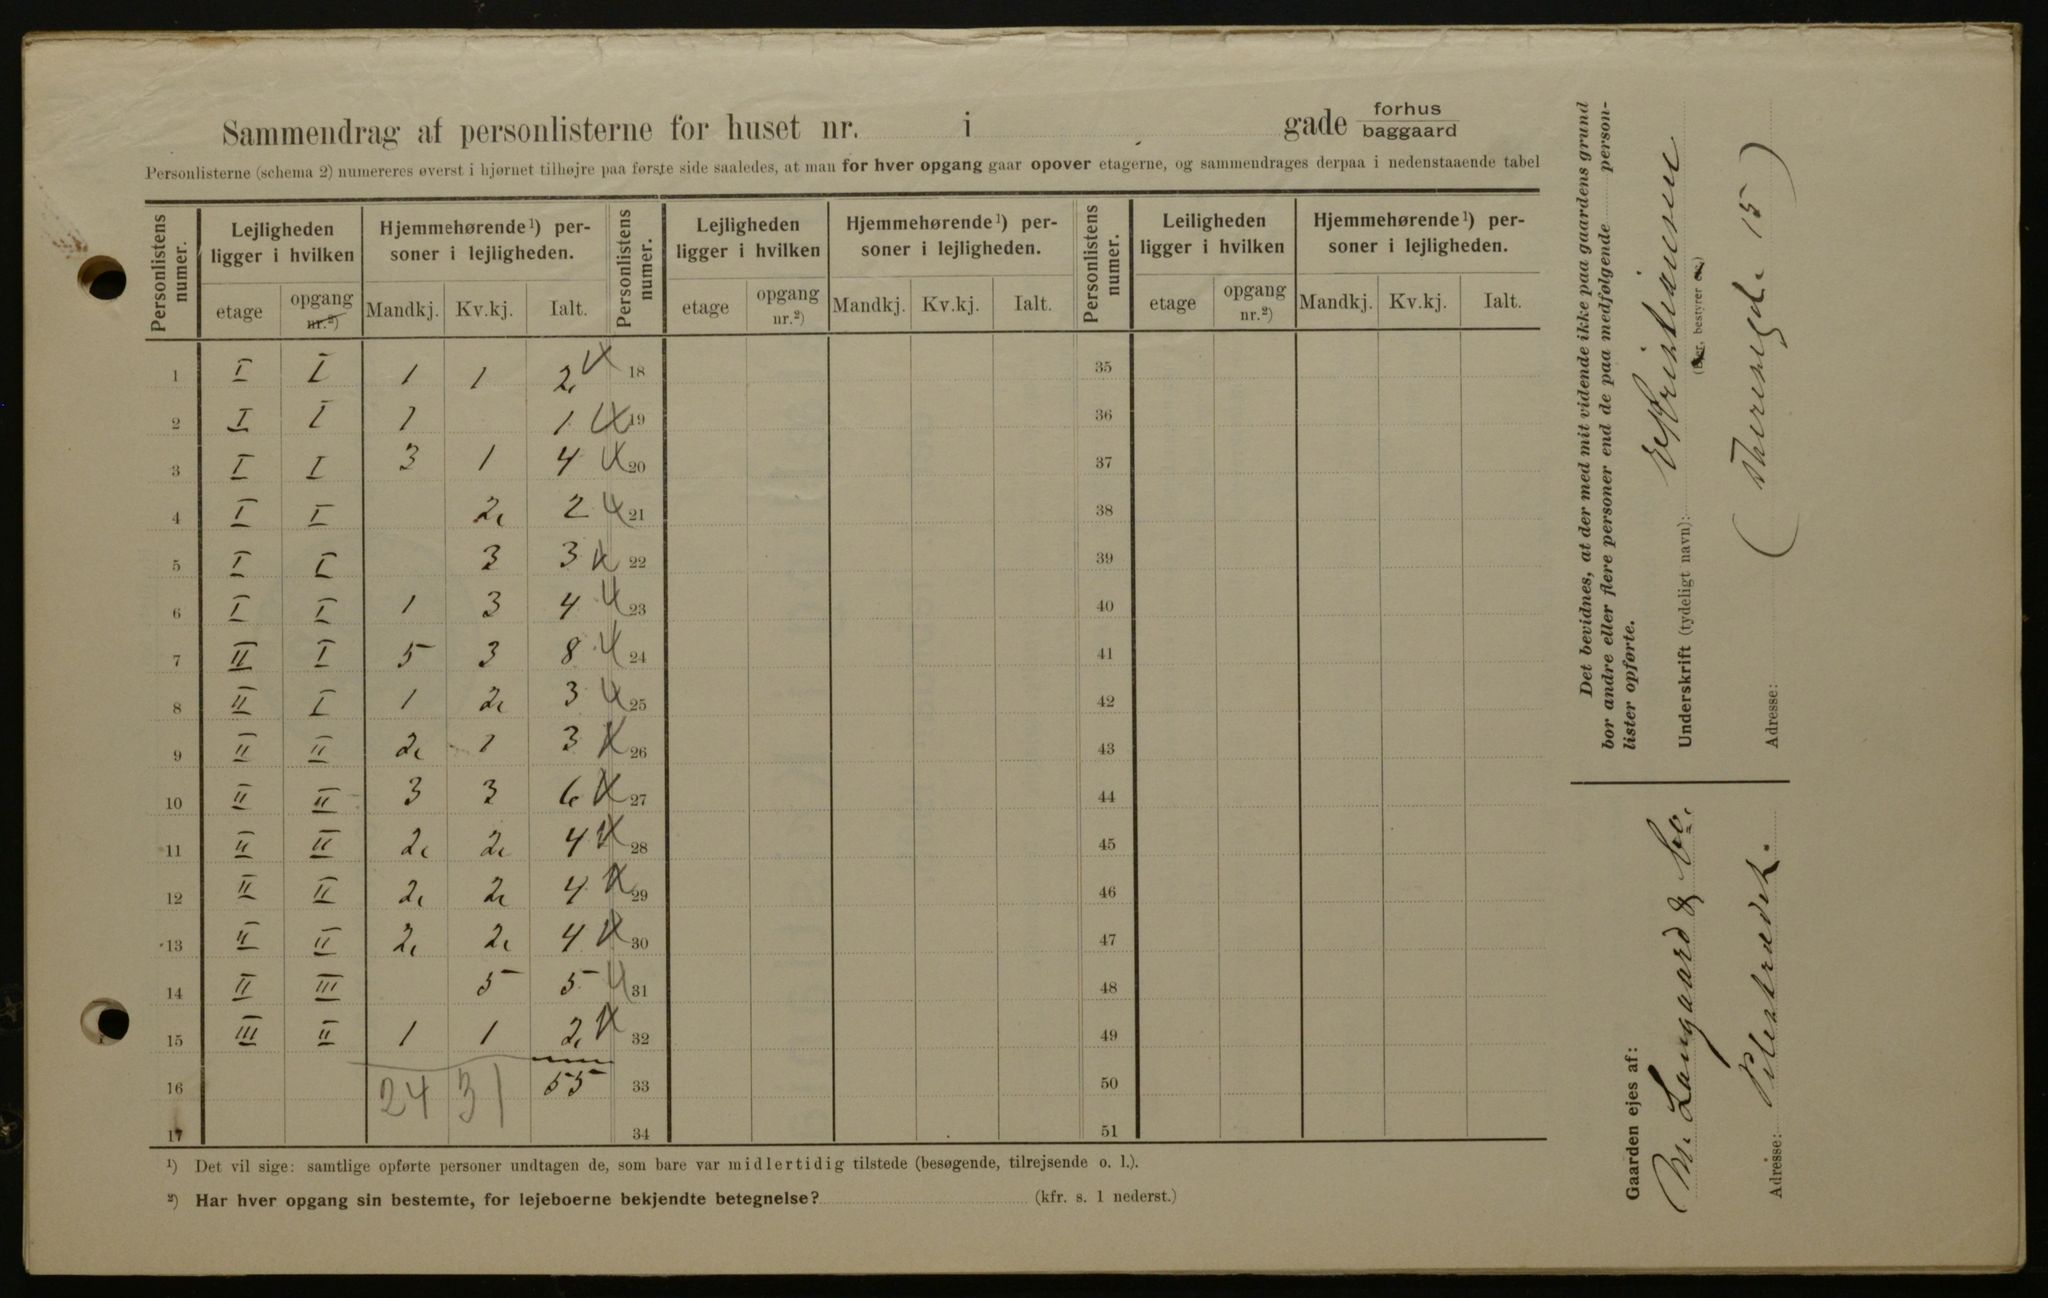 Sammendrag af personlisterne for huset nr. i gade forhus baggaard
Personlisterne (schema 2) numereres øverst i hjørnet tilhøjre paa første side saaledes, at man for hver opgang gaar opover etagerne, og sammendrages derpaa i nedenstaaende tabel
Personlistens numer. Lejligheden ligger i hvilken Hjemmehørende¹) personer i lejligheden. Personlistens numer. Lejligheden ligger i hvilken Hjemmehørende¹) personer i lejligheden. Personlistens numer. Leiligheden ligger i hvilken Hjemmehørende¹) personer i lejligheden.
etage opgang nr.²) Mandkj. Kv.kj. Ialt. etage opgang nr.²) Mandkj. Kv.kj. Ialt. etage opgang nr.²) Mandkj. Kv.kj. Ialt.
1 I I 1 1 2 18 35
2 I I 1 1 19 36
3 I I 3 1 4 20 37
4 I I 2 2 21 38
5 I I 3 3 22 39
6 I I 1 3 4 23 40
7 II I 5 3 8 24 41
8 II I 1 2 3 25 42
9 II II 2 1 3 26 43
10 II II 3 3 6 27 44
11 II II 2 2 4 28 45
12 II II 2 2 4 29 46
13 II II 2 2 4 30 47
14 II III 5 5 31 48
15 III II 1 1 2 32 49
16 24 31 55 33 50
17 34 51
¹) Det vil sige: samtlige opførte personer undtagen de, som bare var midlertidig tilstede (besøgende, tilrejsende o. l.).
²) Har hver opgang sin bestemte, for lejeboerne bekjendte betegnelse? (kfr. s. 1 nederst.)
Det bevidnes, at der med mit vidende ikke paa gaardens grund
bor andre eller flere personer end de paa medfølgende person-
lister opførte.
Underskrift (tydeligt navn): Kristiansen
(Ejer, bestyrer etc.)
Adresse: (Theresegd. 15)
Gaarden ejes af:
M. Langaard & Co.
Adresse: Pilestrædet.